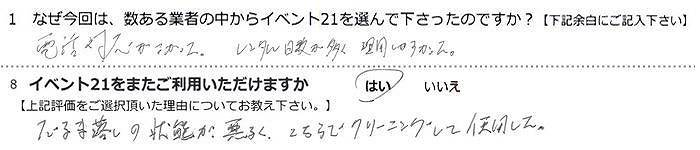 1 なぜ今回は、数ある業者の中からイベント21を選んで下さったのですか?【下記余白にご記入下さい】
電話対応がよかった。 レンタル日数が多く 理由しやすかった。
8 イベント21をまたご利用いただけますか はい いいえ
【上記評価をご選択頂いた理由についてお教え下さい。】
だるま落しの状態が悪く、こちらでクリーニングして使用した。